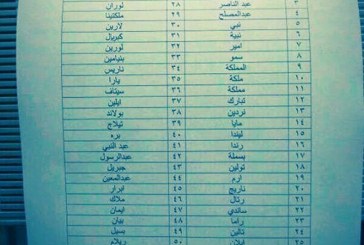 ٣ عبد الناصر ٢٨ لوران
٤ عبدالمصلح ٢٩ ملكتينا
٥ نبي ٣٠ لارين
٦ نبية ٣١ كبريال
٧ امير ٣٢ لورين
٨ سمو ٣٣ بنيامين
٩ المملكة ٣٤ ناريس
١٠ ملكة ٣٥ يارا
١١ مملكة ٣٦ سيتاف
١٢ تبارك ٣٧ ايلين
١٣ نردين ٣٨ بولاند
١٤ مايا ٣٩ تيلاج
١٥ ليندا ٤٠ بره
١٦ رندا ٤١ عبد النبي
١٧ بسملة ٤٢ عبدالرسول
١٨ تولين ٤٣ جبريل
١٩ ارم ٤٤ عبدالمعين
٢٠ ناريج ٤٥ ابرار
٢١ رتال ٤٦ ملاك
٢٢ ساندي ٤٧ ايمان
٢٣ راما ٤٨ بيان
٢٤ تالين ٤٩ بسيل
٢٥ ايلان ٥٠ ريلام